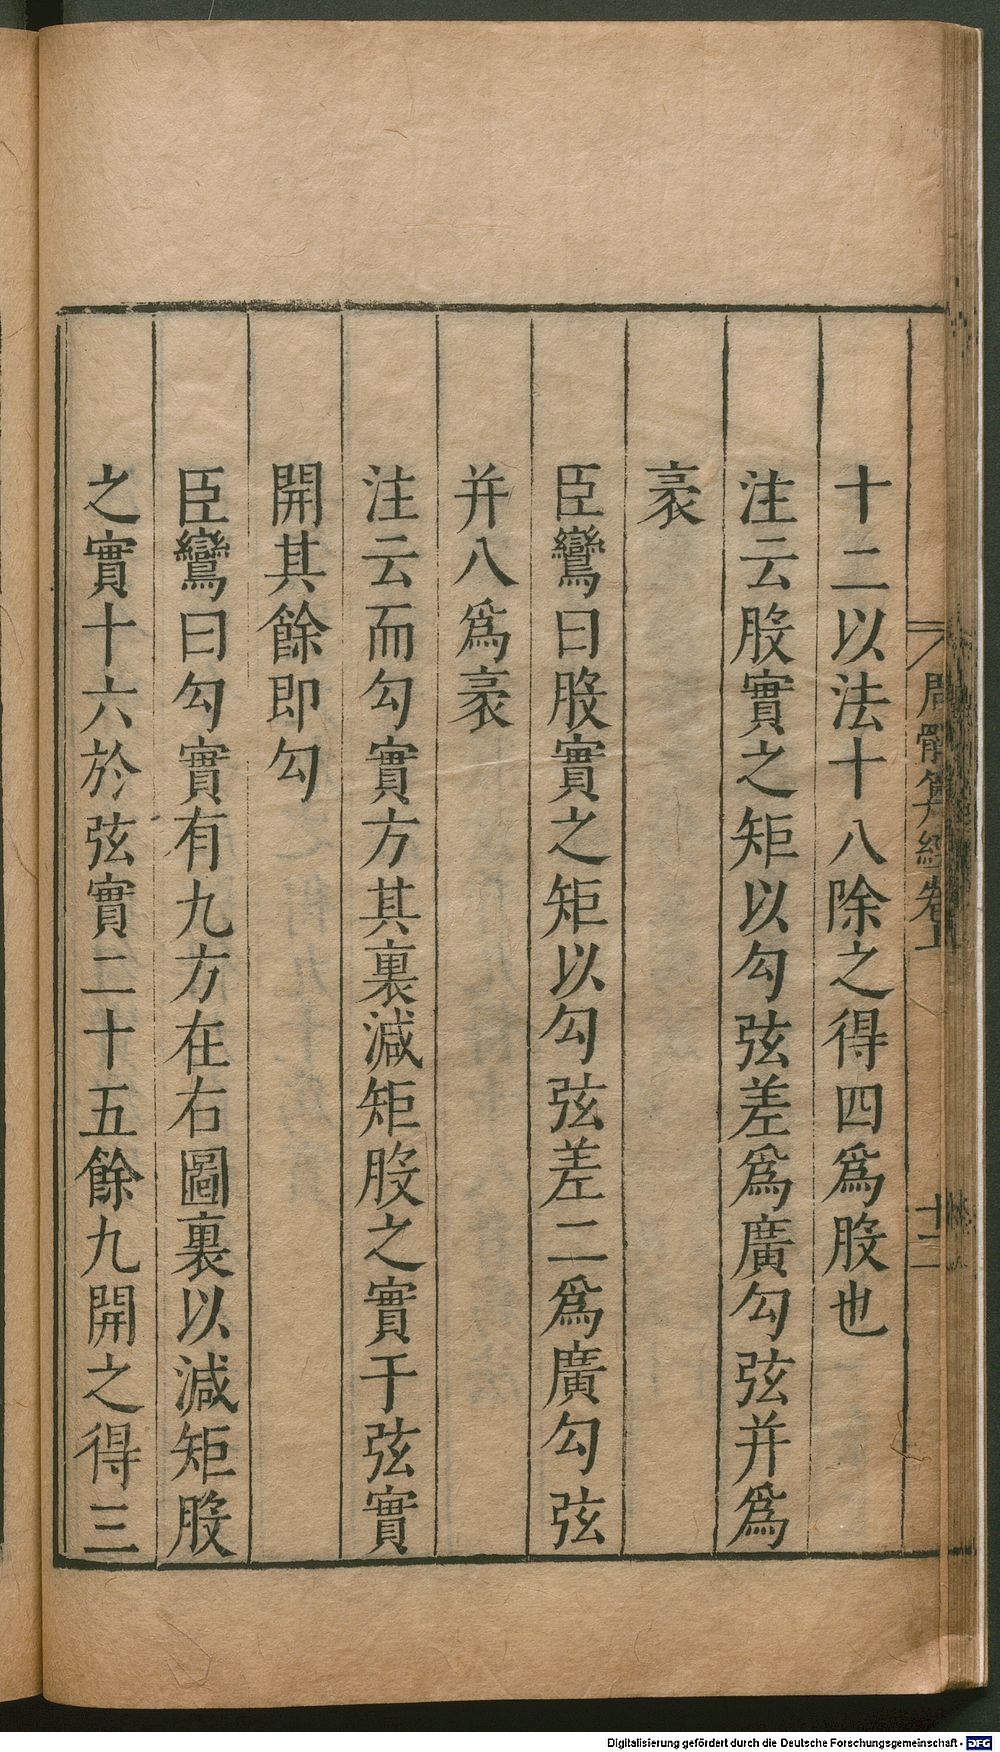 周髀算經卷上
十二
十二以法十八除之得四爲股也
注云股實之矩以勾弦差爲廣勾弦并爲
袤
臣鸞曰股實之矩以勾弦差二爲廣勾弦
并八爲袤
注云而勾實方其裏減矩股之實于弦實
開其餘即勾
臣鸞曰勾實有九方在右圖裏以減矩股
之實十六於弦實二十五餘九開之得三
Digitalisierung gefördert durch die Deutsche Forschungsgemeinschaft - DFG